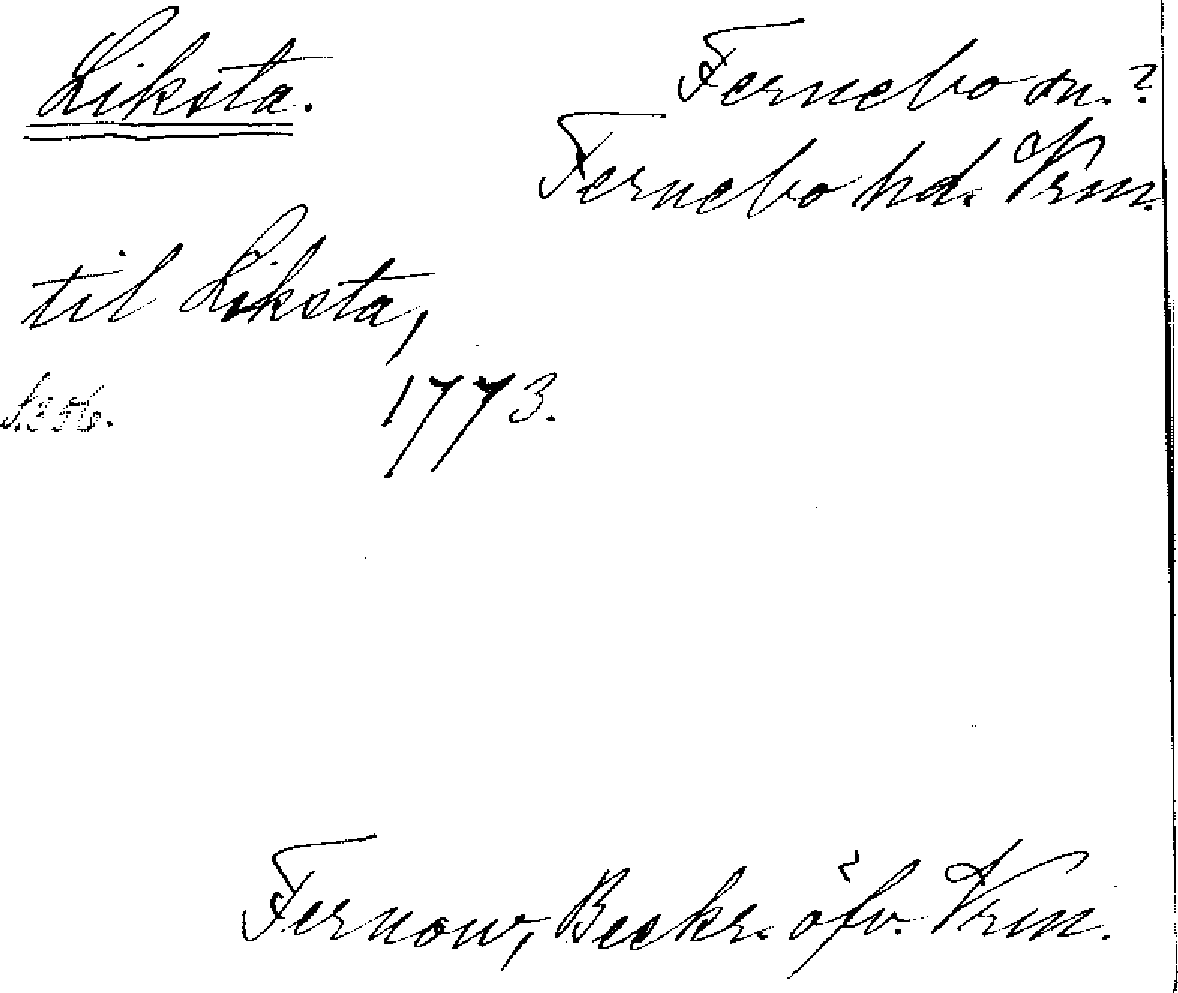 Liksta.
Fernebo sn.?
Fernebo hd. Vrm.
til Liksta,
s. 356.
1773.
Fernow, Beskr. öfv. Vrm.